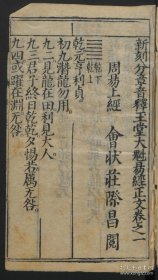 新刻分章音釋玉堂大魁易經正文卷之一
周易上經　會狀莊際昌閱
乾下
乾上
乾元亨利貞
初九潛龍勿用
九二見龍在田利見大人
九三君子終日乾乾夕惕若厲无咎
九四或躍在淵无咎